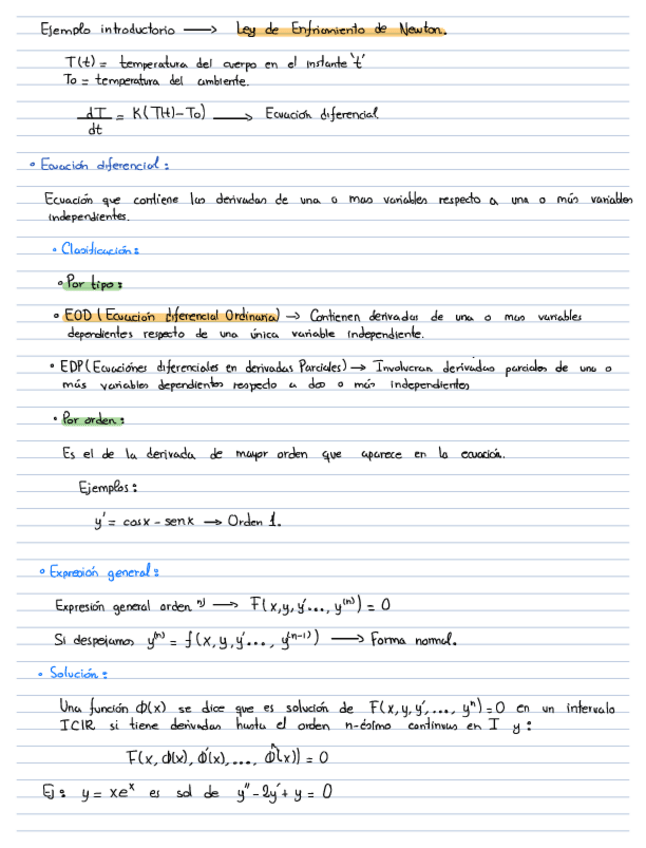 Ejemplo introductorio ⟶ Ley de Enfriamiento de Newton.
T(t) = temperatura del cuerpo en el instante 't'
To = temperatura del ambiente.
dT/dt = K(T(t)-To) ⟶ Ecuación diferencial
• Ecuación diferencial:
Ecuación que contiene las derivadas de una o mas variables respecto a una o más variables
independientes.
• Clasificación:
• Por tipo:
• EOD (Ecuación diferencial Ordinaria) → Contienen derivadas de una o mas variables
dependientes respecto de una única variable independiente.
• EDP (Ecuaciónes diferenciales en derivadas Parciales) → Involucran derivadas parciales de una o
más variables dependientes respecto a dos o más independientes
• Por orden:
Es el de la derivada de mayor orden que aparece en la ecuación.
Ejemplos:
y' = cosx - senx → Orden 1.
• Expresión general:
Expresión general orden n) ⟶ F(x,y,y'..., y⁽ⁿ⁾) = 0
Si despejamos y⁽ⁿ⁾ = f(x,y,y'..., y⁽ⁿ⁻¹⁾) ⟶ Forma normal.
• Solución:
Una función ϕ(x) se dice que es solución de F(x,y,y',..., yⁿ)=0 en un intervalo
ICIR si tiene derivadas hasta el orden n-ésimo continuas en I y:
F(x, ϕ(x), ϕ'(x),..., ϕⁿ(x)) = 0
Ej: y = xeˣ es sol de y'' - 2y' + y = 0